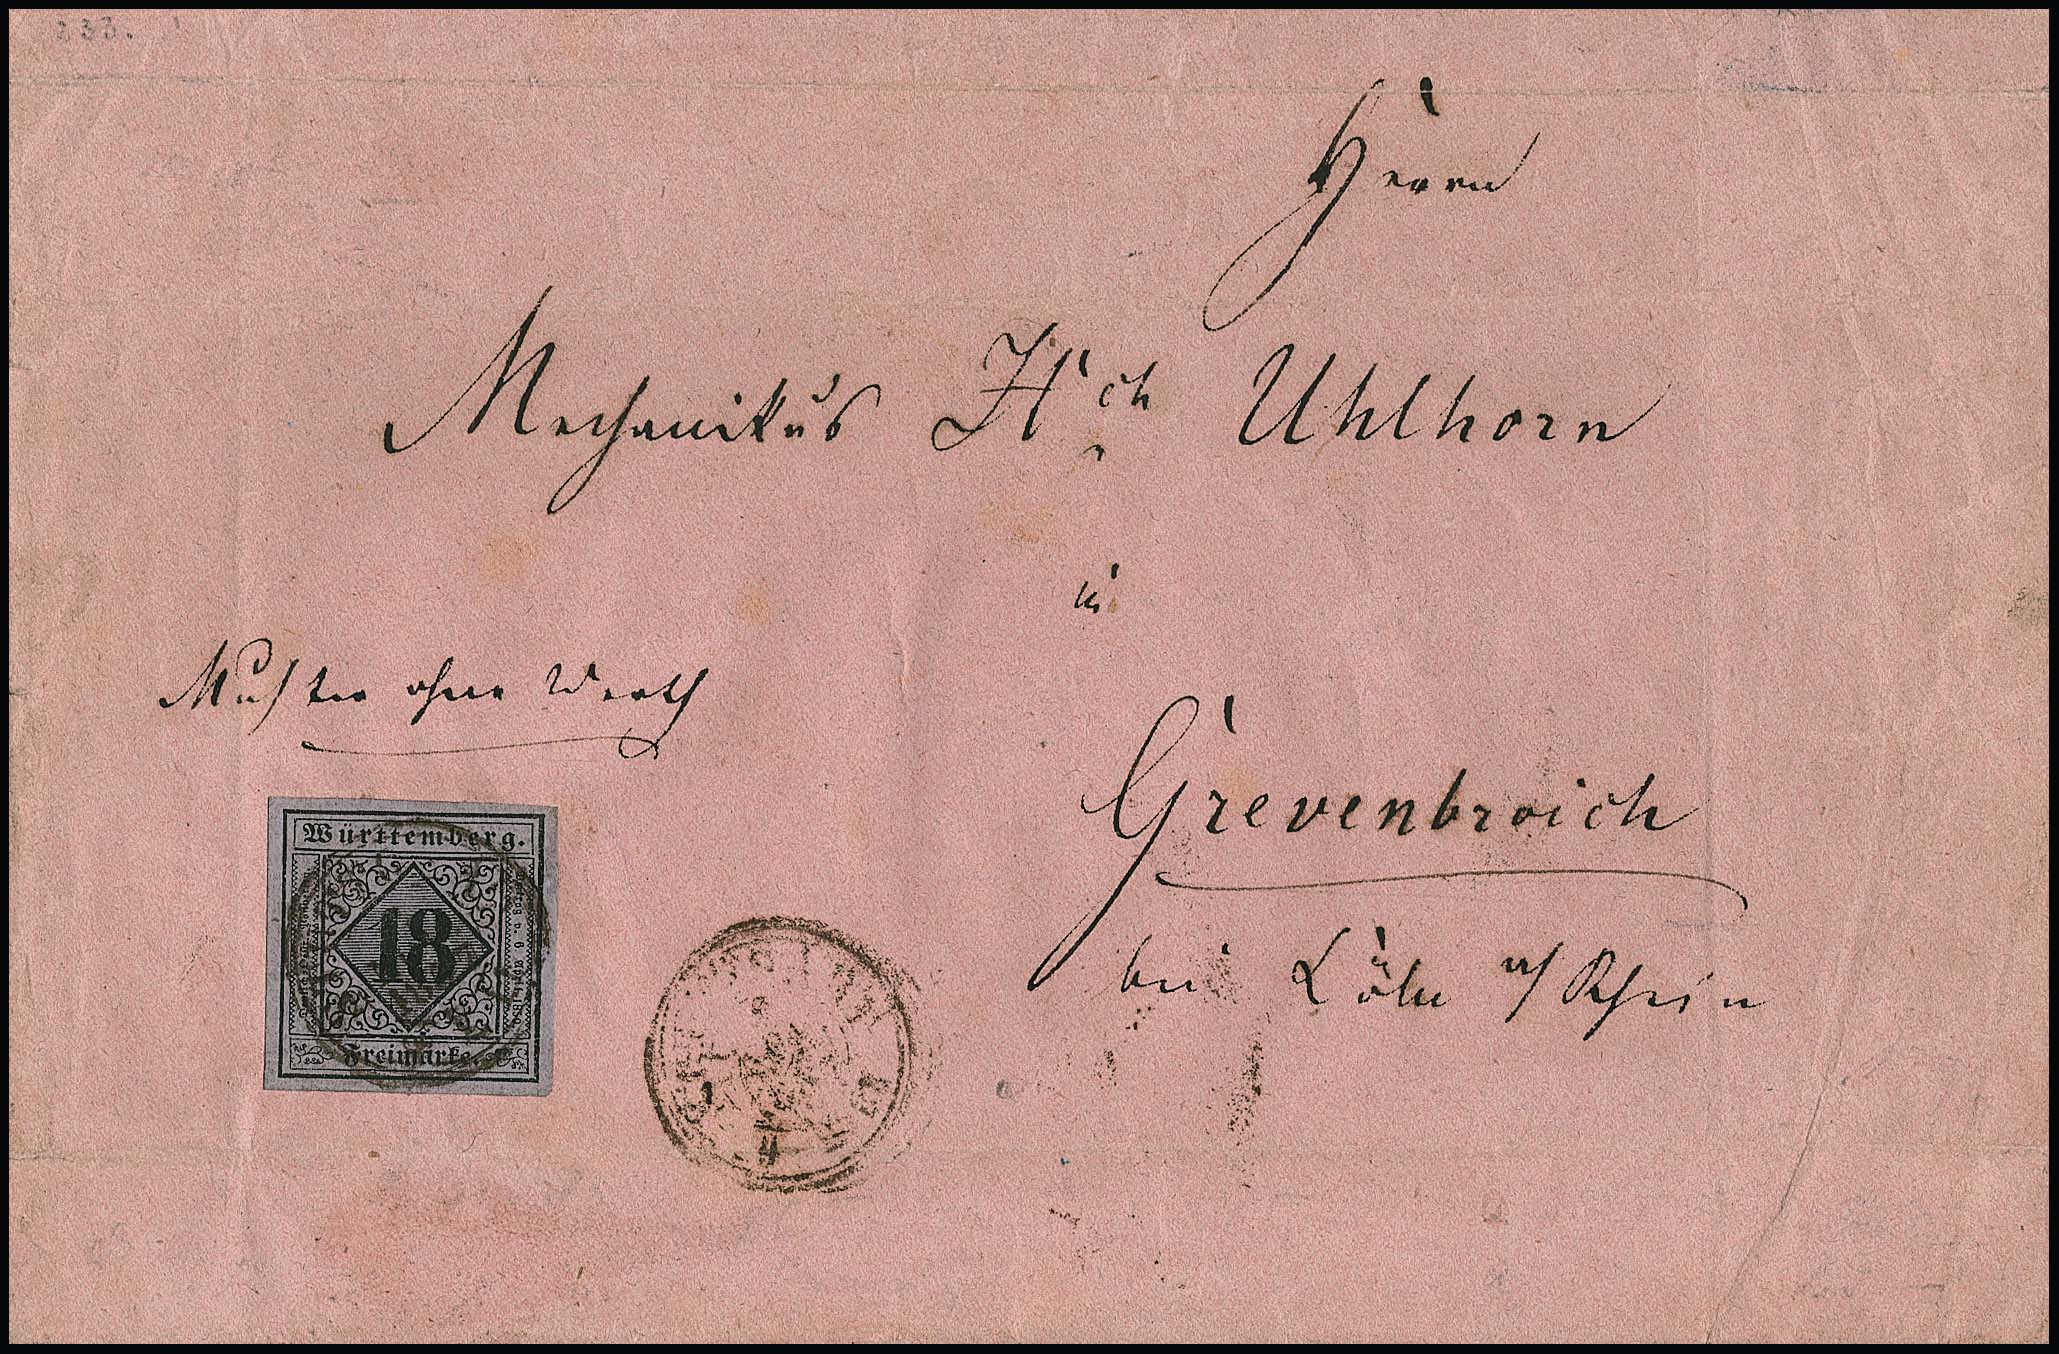 233.
Herrn
Mechanikus Hch Uhlhorn
in
Muster ohne Werth
Grevenbroich
bei Cöln a/ Rhein
Württemberg.
18
Freimarke.